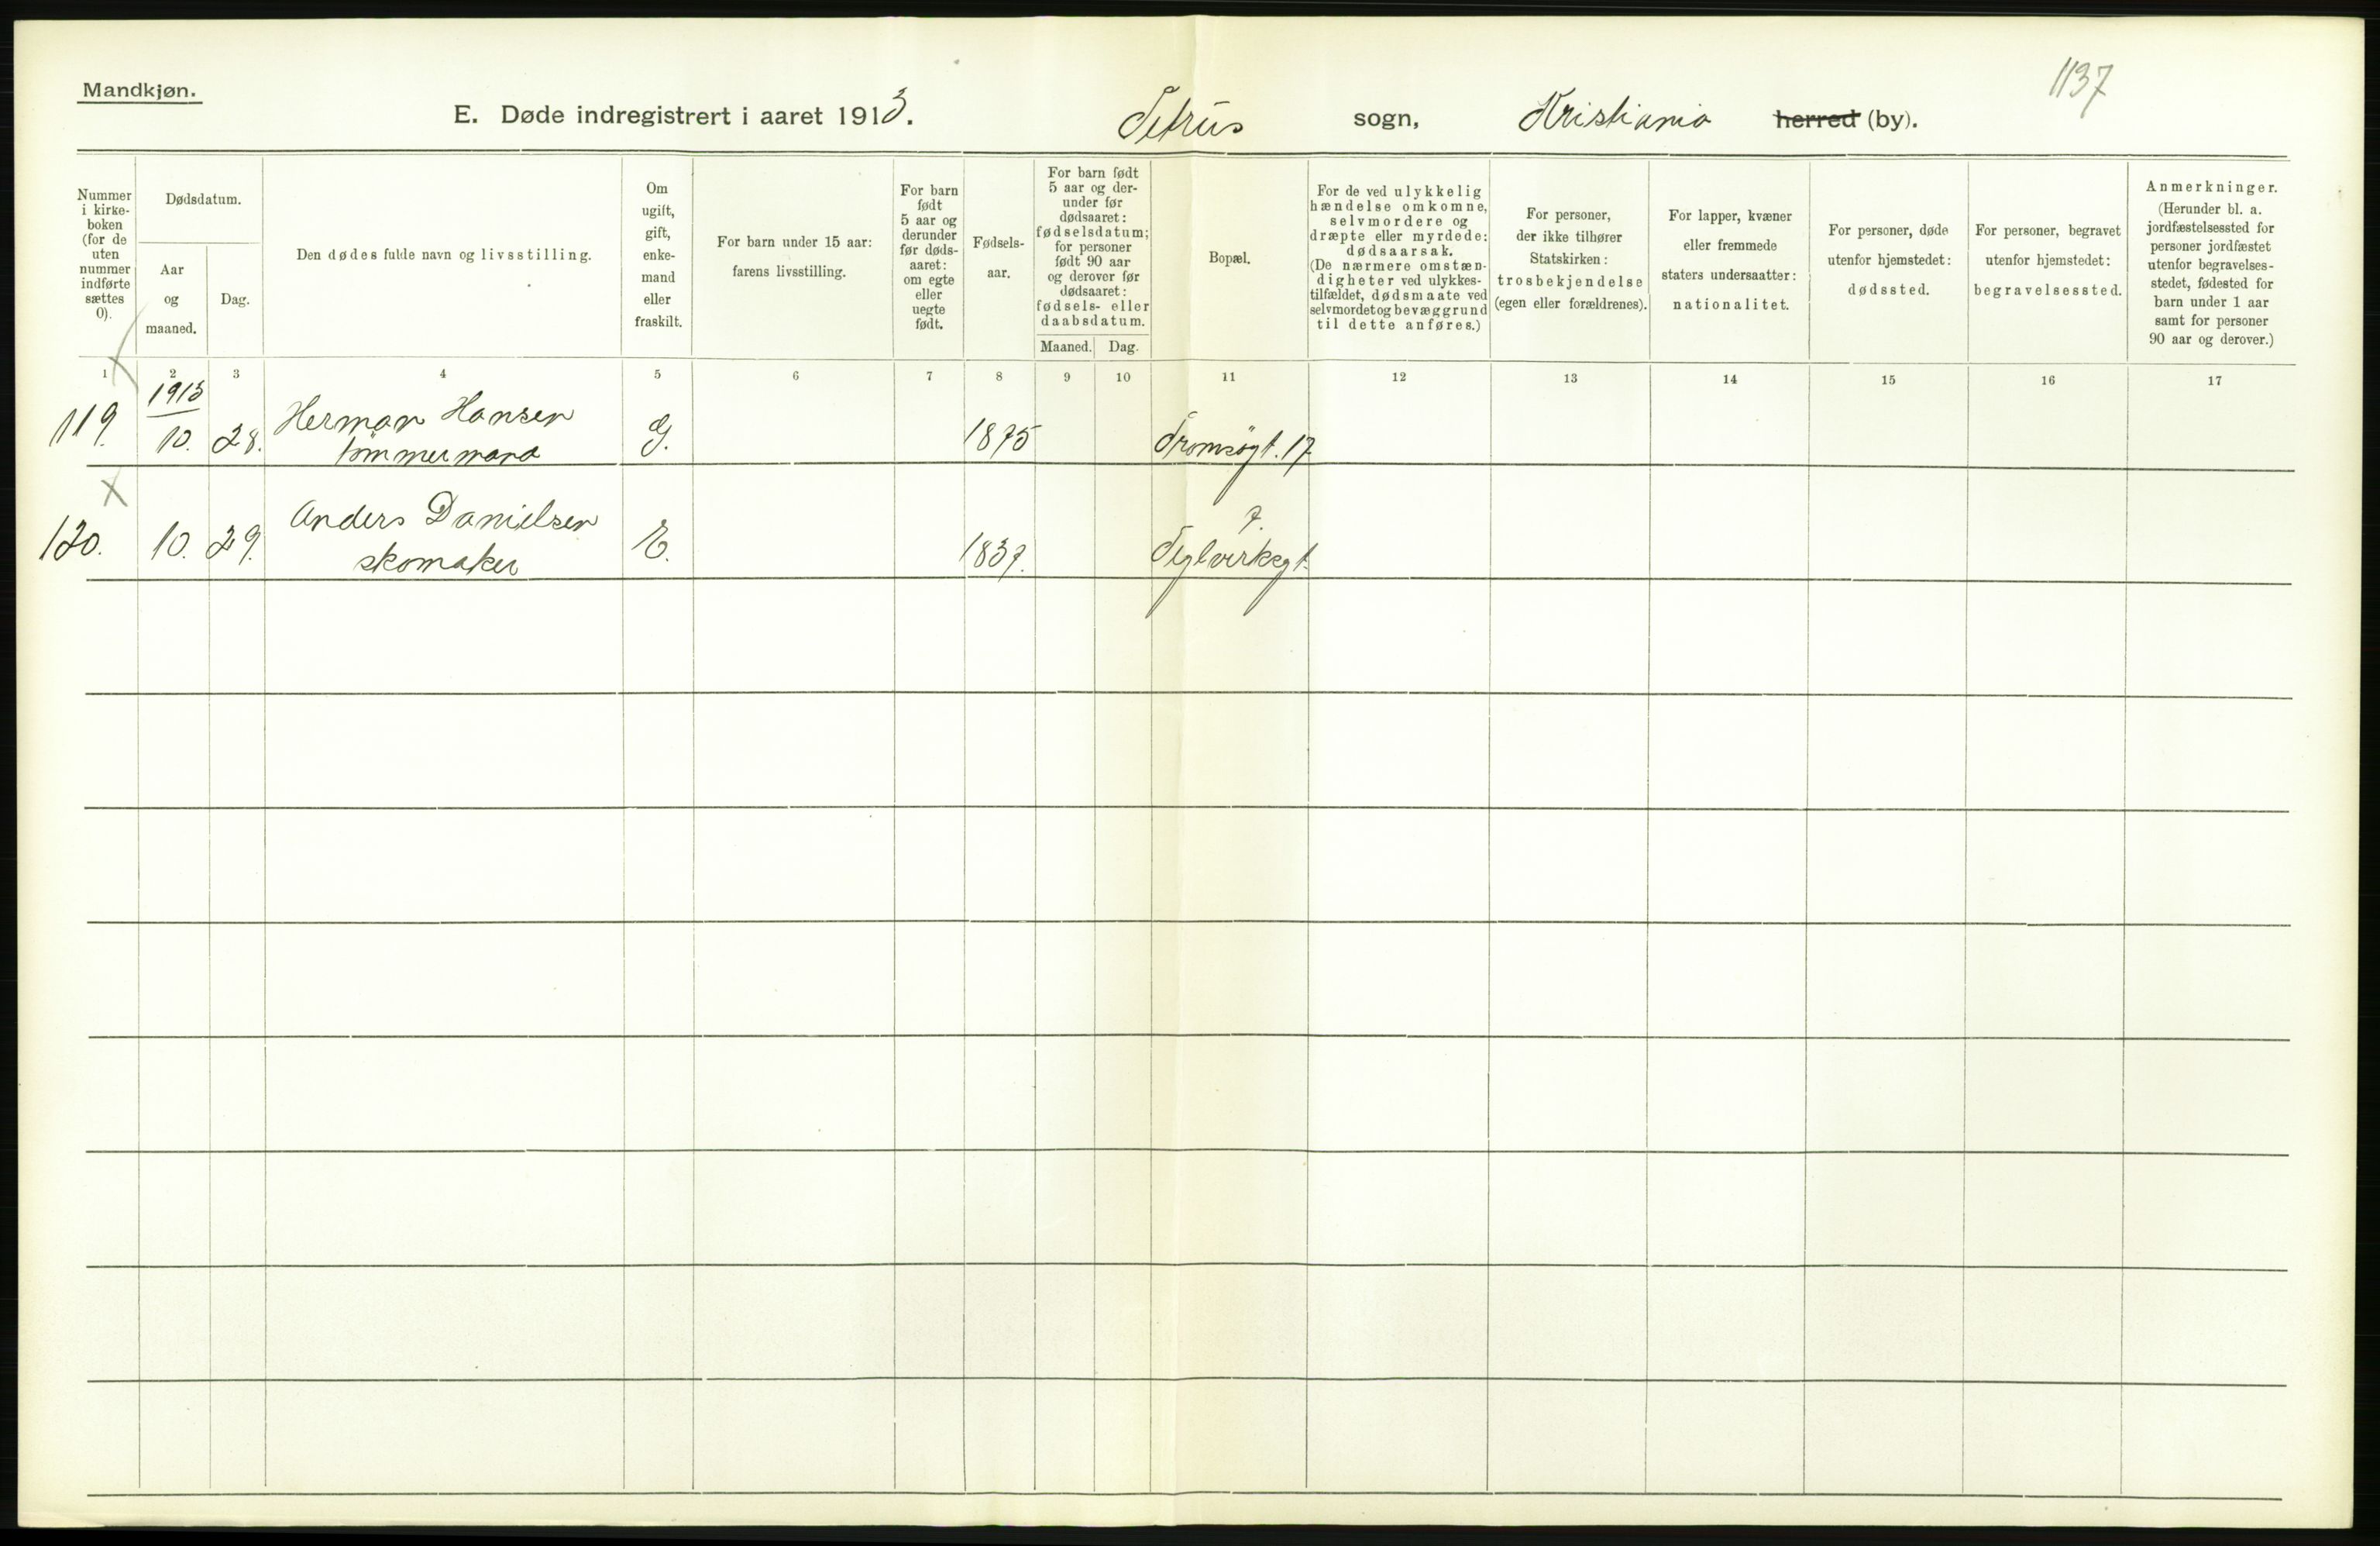 Mandkjøn.
1137
E. Døde indregistrert i aaret 1913. Petrus sogn, Kristiania herred (by).
Nummer
i kirke-
boken
(for de
uten
nummer
indførte
sættes
0).
Dødsdatum.
Aar
og
maaned.
Dag.
Den dødes fulde navn og livsstilling.
Om
ugift,
gift,
enke-
mand
eller
fraskilt.
For barn under 15 aar:
farens livsstilling.
For barn
født
5 aar og
derunder
før døds-
aaret:
om egte
eller
uegte
født.
Fødsels-
aar.
For barn født
5 aar og der-
under før
dødsaaret:
fødselsdatum;
for personer
født 90 aar
og derover før
dødsaaret:
fødsels- eller
daabsdatum.
Maaned. Dag.
Bopæl.
For de ved ulykkelig
hændelse omkomne,
selvmordere og
dræpte eller myrdede:
dødsaarsak.
(De nærmere omstæn-
digheter ved ulykkes-
tilfældet, dødsmaate ved
selvmordet og bevæggrund
til dette anføres.)
For personer,
der ikke tilhører
Statskirken:
trosbekjendelse
(egen eller forældrenes).
For lapper, kvæner
eller fremmede
staters undersaatter:
nationalitet.
For personer, døde
utenfor hjemstedet:
dødssted.
For personer, begravet
utenfor hjemstedet:
begravelsessted.
Anmerkninger.
(Herunder bl. a.
jordfæstelsessted for
personer jordfæstet
utenfor begravelses-
stedet, fødested for
barn under 1 aar
samt for personer
90 aar og derover.)
1 2 3 4 5 6 7 8 9 10 11 12 13 14 15 16 17
1913
119. 10. 28. Herman Hansen G. 1875 Tromsøgt. 17
tømmermand
120. 10. 29. Anders Danielsen E. 1837. 7.
skomaker Teglverksgt.